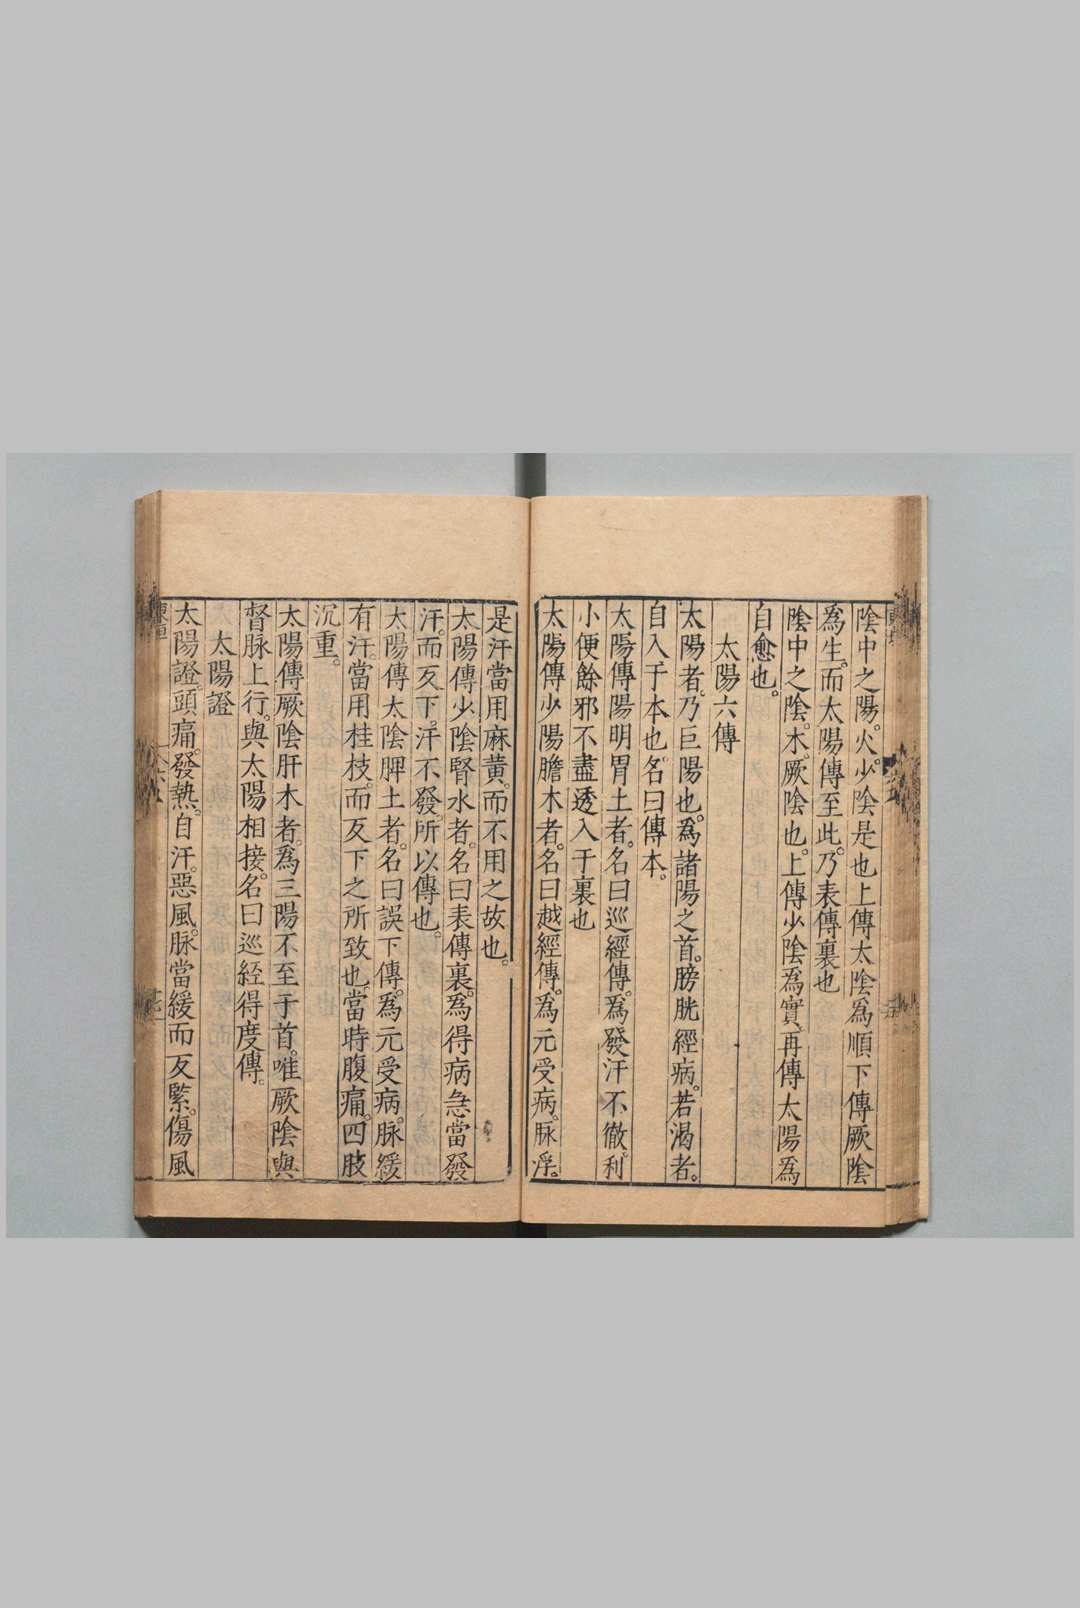 陰中之陽。火。少陰是也上傳太陰爲順下傳厥陰
爲生。而太陽傳至此。乃表傳裏也
陰中之陰。木。厥陰也。上傳少陰爲實。再傳太陽爲
自愈也。
太陽六傳
太陽者。乃巨陽也。爲諸陽之首。膀胱經病。若渴者。
自入于本也。名曰傳本。
太陽傳陽明胃土者。名曰巡經傳。爲發汗不徹。利
小便餘邪不盡透入于裏也
太陽傳少陽膽木者。名曰越經傳。爲元受病。脉浮。
是汗當用麻黄。而不用之故也。
太陽傳少陰腎水者。名曰表傳裏。爲得病急當發
汗。而反下。汗不發。所以傳也。
太陽傳太陰脾土者。名曰誤下傳。爲元受病。脉緩
有汗。當用桂枝。而反下之所致也。當時腹痛。四肢
沉重。
太陽傳厥陰肝木者。爲三陽不至于首。唯厥陰與
督脉上行。與太陽相接。名曰巡經得度傳。
太陽證
太陽證。頭痛。發熱。自汗。惡風。脉當緩而反緊。傷風
東垣